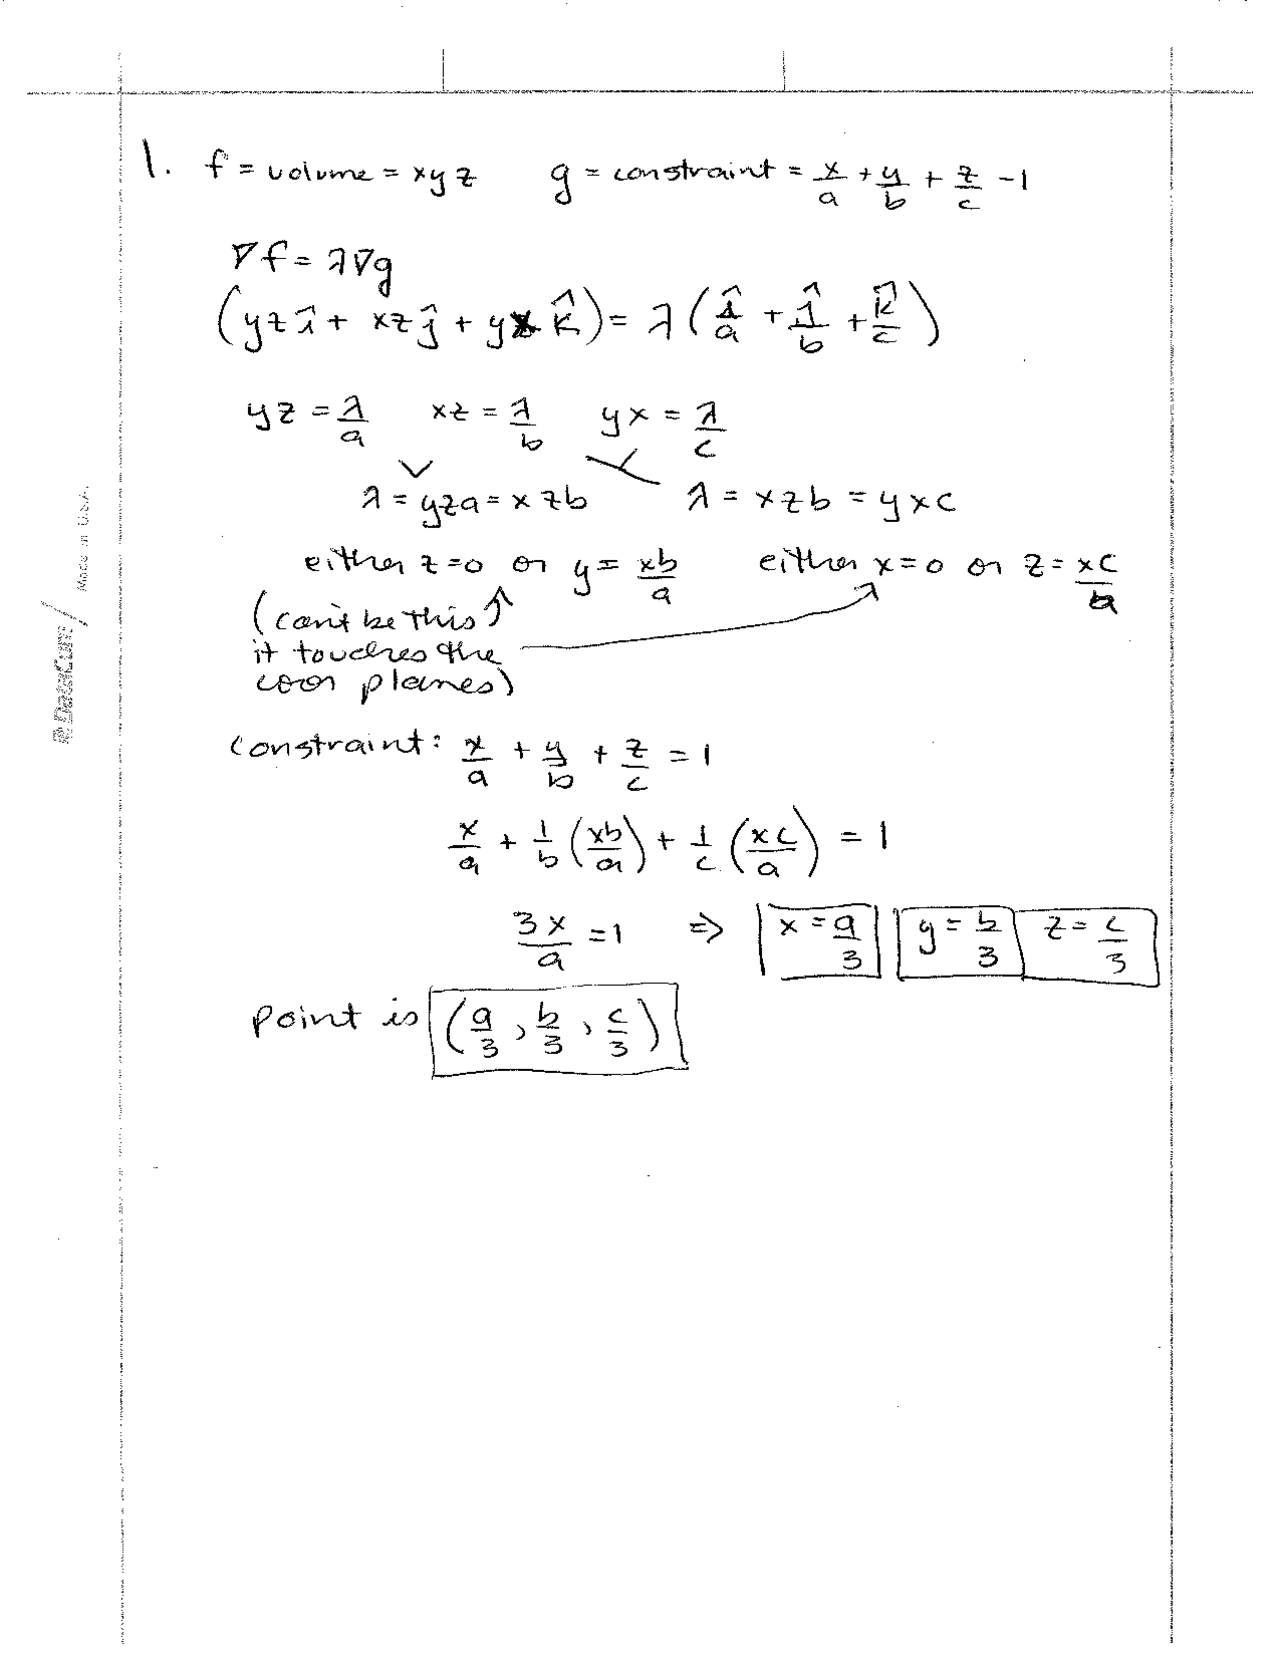 1. f = volume = xyz g = constraint = x/a + y/b + z/c - 1
∇f = λ∇g
(yz î + xz ĵ + yx k̂) = λ(î/a + ĵ/b + k̂/c)
yz = λ/a xz = λ/b yx = λ/c
λ = yza = xzb λ = xzb = yxc
either z=0 or y = xb/a either x=0 or z = xc/a
(can't be this
it touches the
coor planes)
constraint: x/a + y/b + z/c = 1
x/a + 1/b (xb/a) + 1/c (xc/a) = 1
3x/a = 1 => x = a/3 y = b/3 z = c/3
point is (a/3, b/3, c/3)
DataCom/ Made in U.S.A.